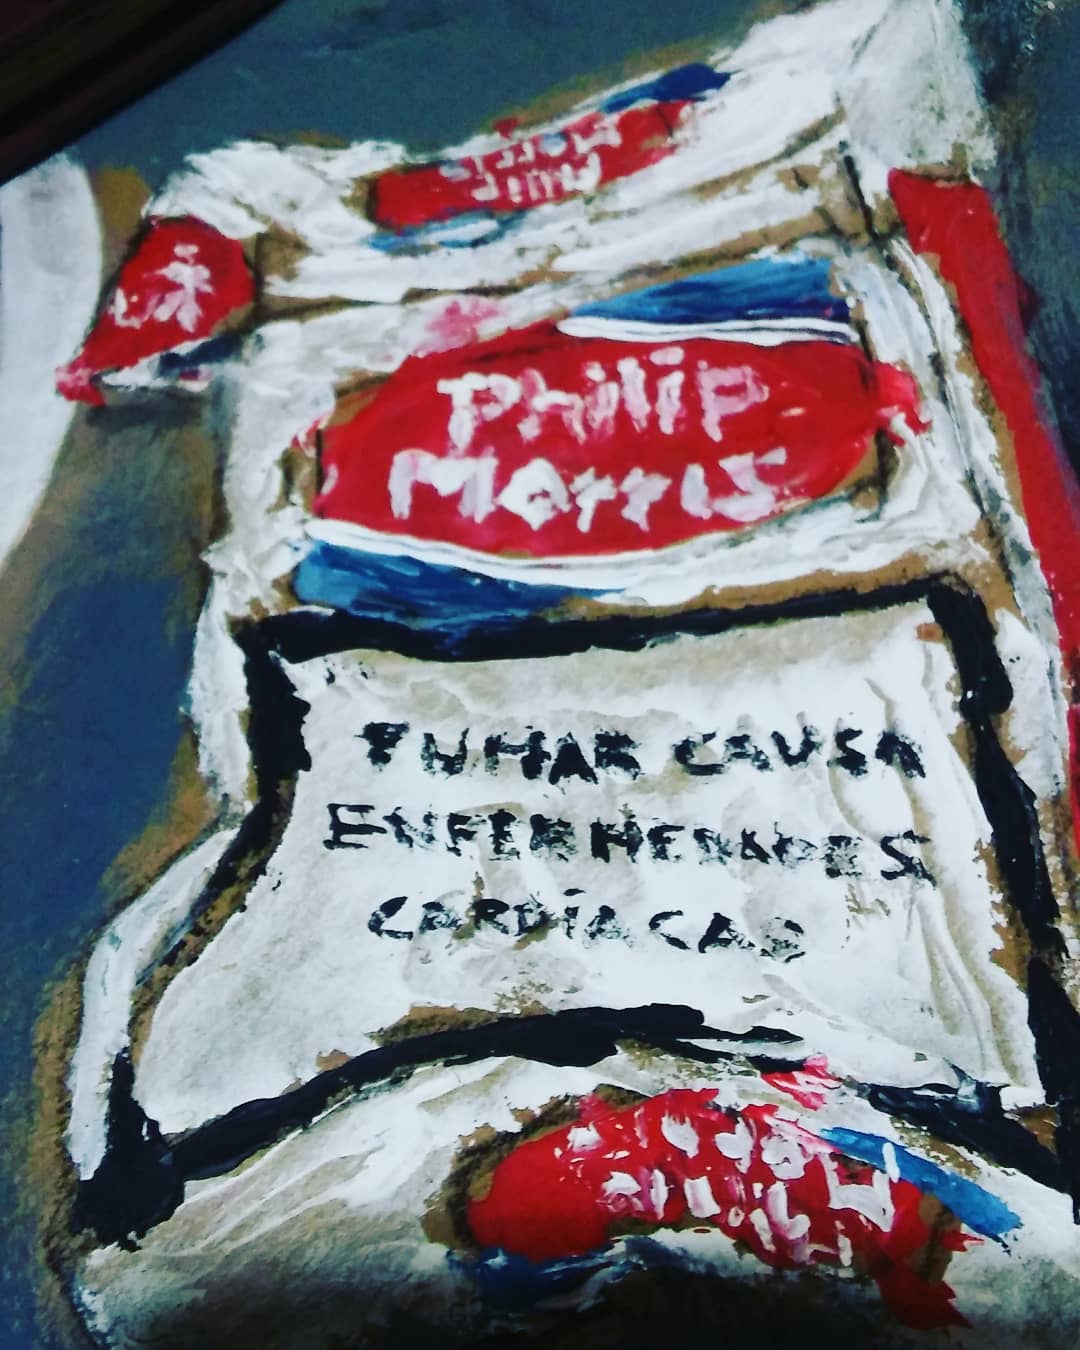 Philip
Morris
FUMAR CAUSA
ENFERMEDADES
CARDÍACAS